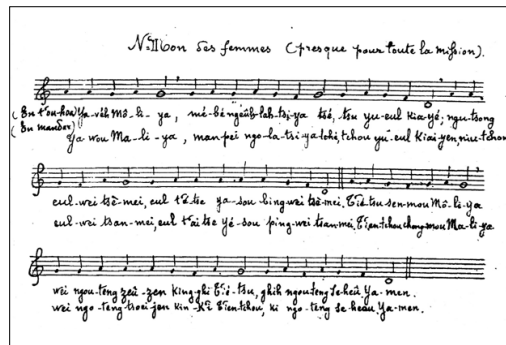 N. II Ton des femmes (presque pour toute la mission).
(En t'ou-hoa) Ya-véh Mô-li-ya, mé-bé ngeûh-lah-tsi-ya tsé, tsu yu-eul Kia-yé; ngu tsong
(En mandar) Ya wou Ma-li-ya, man pei ngo-la-tsi-ya tchi, tchou yu-eul Kiai yen, niu tchong
eul-wei tsè-mei, eul t'è-tse ya-sou bing-wei tsè-mei. T'ié-tsu sen-mou Mô-li-ya
eul-wei tsan-mei, eul t'ai tse yé-sou ping-wei tsan-mei. T'ien-tchou cheng mou Ma-li-ya
wei ngou-teng zeû-zen King-ghi T'ié-tsu, ghih ngou teng se-heû. Ya-men.
wei ngo-teng tsoei-jen kin-K'i T'ien-tchou, ki ngo-teng se-heou. Ya-men.